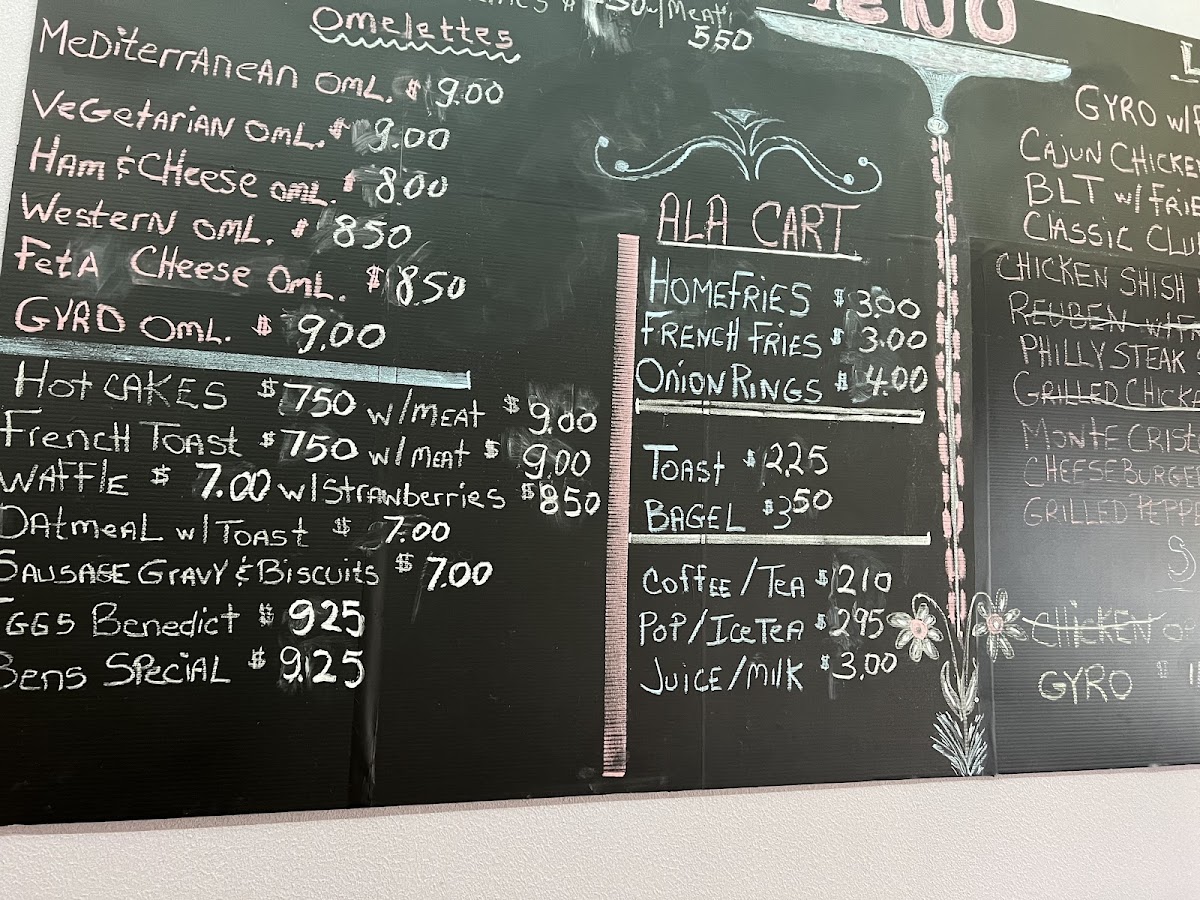 w/Meat
5.50
MENU
Omelettes
Mediterranean OML. $ 9.00
Vegetarian OML. $ 9.00
Ham & Cheese OML. $ 8.00
Western OML. $ 850
Feta Cheese OML. $ 8.50
GYRO OML. $ 9.00
Hot CAKES $ 750 w/MEAT $ 9.00
French Toast $ 750 w/MEAT $ 9.00
WAFFLE $ 7.00 w/Strawberries $ 850
OATMEAL w/TOAST $ 7.00
SAUSAGE GRAVY & Biscuits $ 7.00
EGGS Benedict $ 925
Bens SPECIAL $ 9.25
ALA CART
HOMEFRIES $ 3.00
FRENCH FRIES $ 3.00
ONION RINGS $ 4.00
TOAST $ 2.25
BAGEL $ 3.50
COFFEE/TEA $ 210
POP/ICETEA $ 295
JUICE/MILK $ 3.00
GYRO w/
CAJUN CHICKEN
BLT w/
CLASSIC
CHICKEN SHISH
REUBEN
PHILLY STEAK
GRILLED
MONTE
GRILLED
CHICKEN
GYRO $